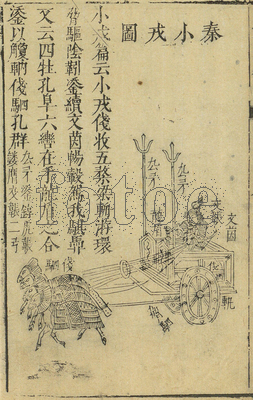 秦小戎圖
小戎篇云小戎俴收五楘梁輈游環
脅驅陰靷鋈續文茵暢轂駕我騏馵
又云四牡孔阜六轡在手龍盾之合
鋈以觼軜俴駟孔群
厹矛鋈錞虎韔
鏤膺交韔二弓
厹矛
厹矛
文茵
俴駟